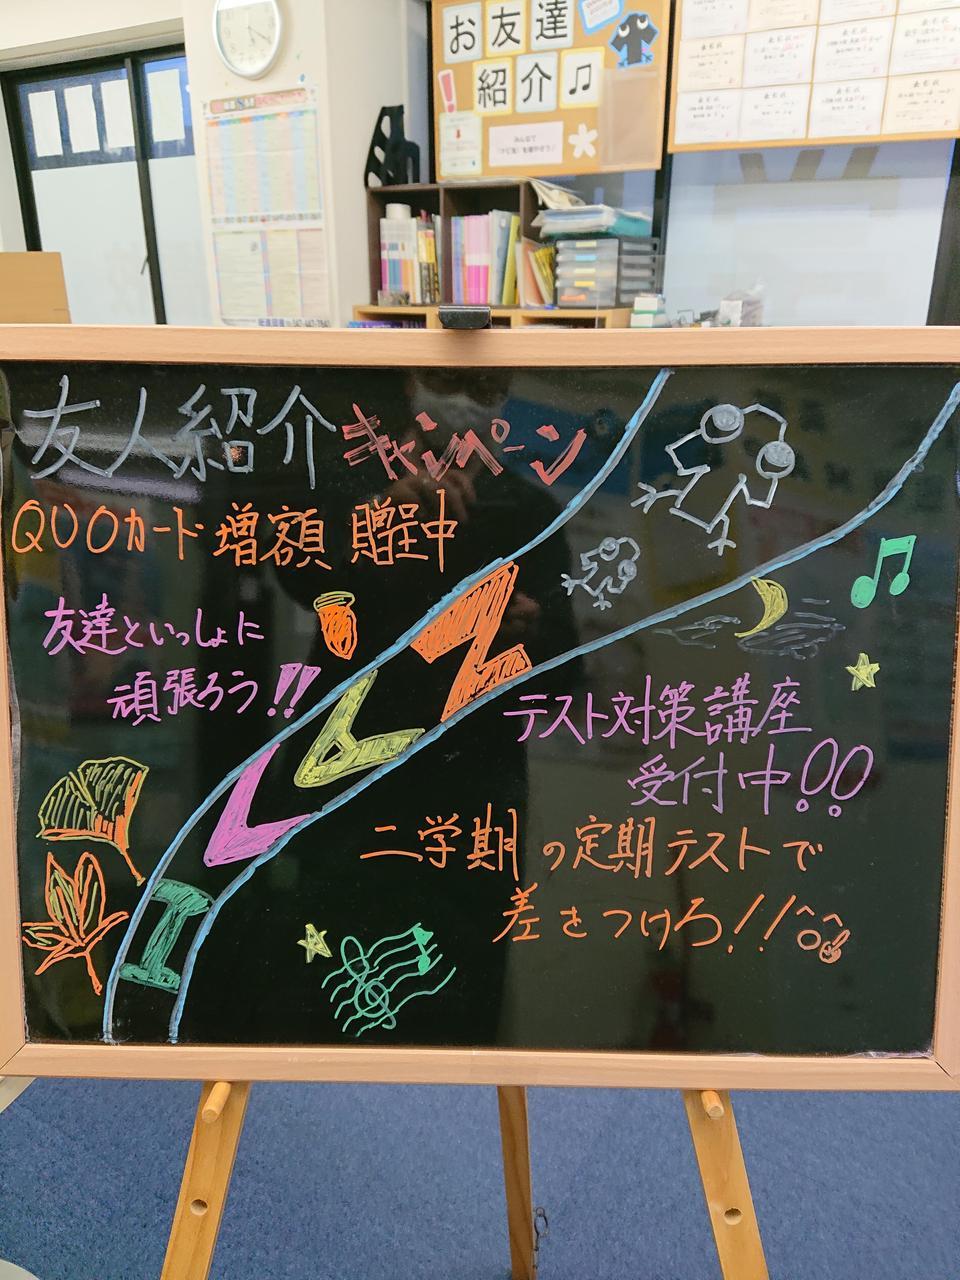 お友達
紹介♫
友人紹介キャンペーン
QUOカード増額 贈呈中
友達といっしょに
頑張ろう!!
テスト対策講座
受付中!!
二学期の定期テストで
差をつけろ!!